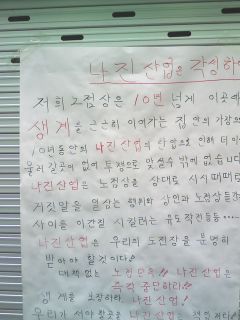 나진산업은 각성하
저희 노점상은 10년 넘게 이곳에
생계를 근근히 이어가는 집안의 가장으
10년동안의 나진산업의 만압으로 인해 더이
물러갈곳이 없어 투쟁으로 맞설수 밖에 없습니다
나진산업은 노점상을 상대로 시시때때로
거짓말을 일삼는 행위와 상인과 노점상들간
사이를 이간질 시킬려는 유도작전등등····
나진산업은 우리의 도전장을 분명히
받아야 할것이다!
대책없는 노점단속!! 나진산업은
즉각 중단하라!!
생계를 보장하라 나진산업!
우리가 서야할곳은 나진산업